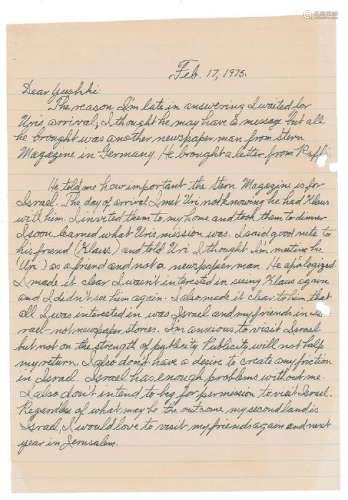 Feb. 17, 1975.
Dear Yushki
The reason I'm late in answering I waited for
Uri's arrival, I thought he may have to message but all
he brought was another newspaper man from Stern
Magazine in Germany. He brought a letter from Raffi.
He told me how important the Stern Magazine is for
Israel. The day of arrival I met Uri not knowing he had Klaus
with him. I invited them to my home and took them to dinner
I soon learned what Uri's mission was. I said good nite to
his friend (Klaus) and told Uri I thought I'm meeting he
Uri) as a friend and not a newspaper man. He apologized
I made it clear I wasn't interested in seeing Klaus again
and I didn't see him again. I also made it clear to him that
all I was interested in was Israel and my friends in Is-
rael - not newspaper stories. I'm anxious to visit Israel
but not on the strength of publicity Publicity will not help
my return. I also don't have a desire to create any friction
in Israel. Israel has enough problems without me
I also dont intend to beg for permission to visit Israel.
Regardless of what may be the outcome my second land is
Israel, I would love to visit my friends again and next
year in Jerusalem.